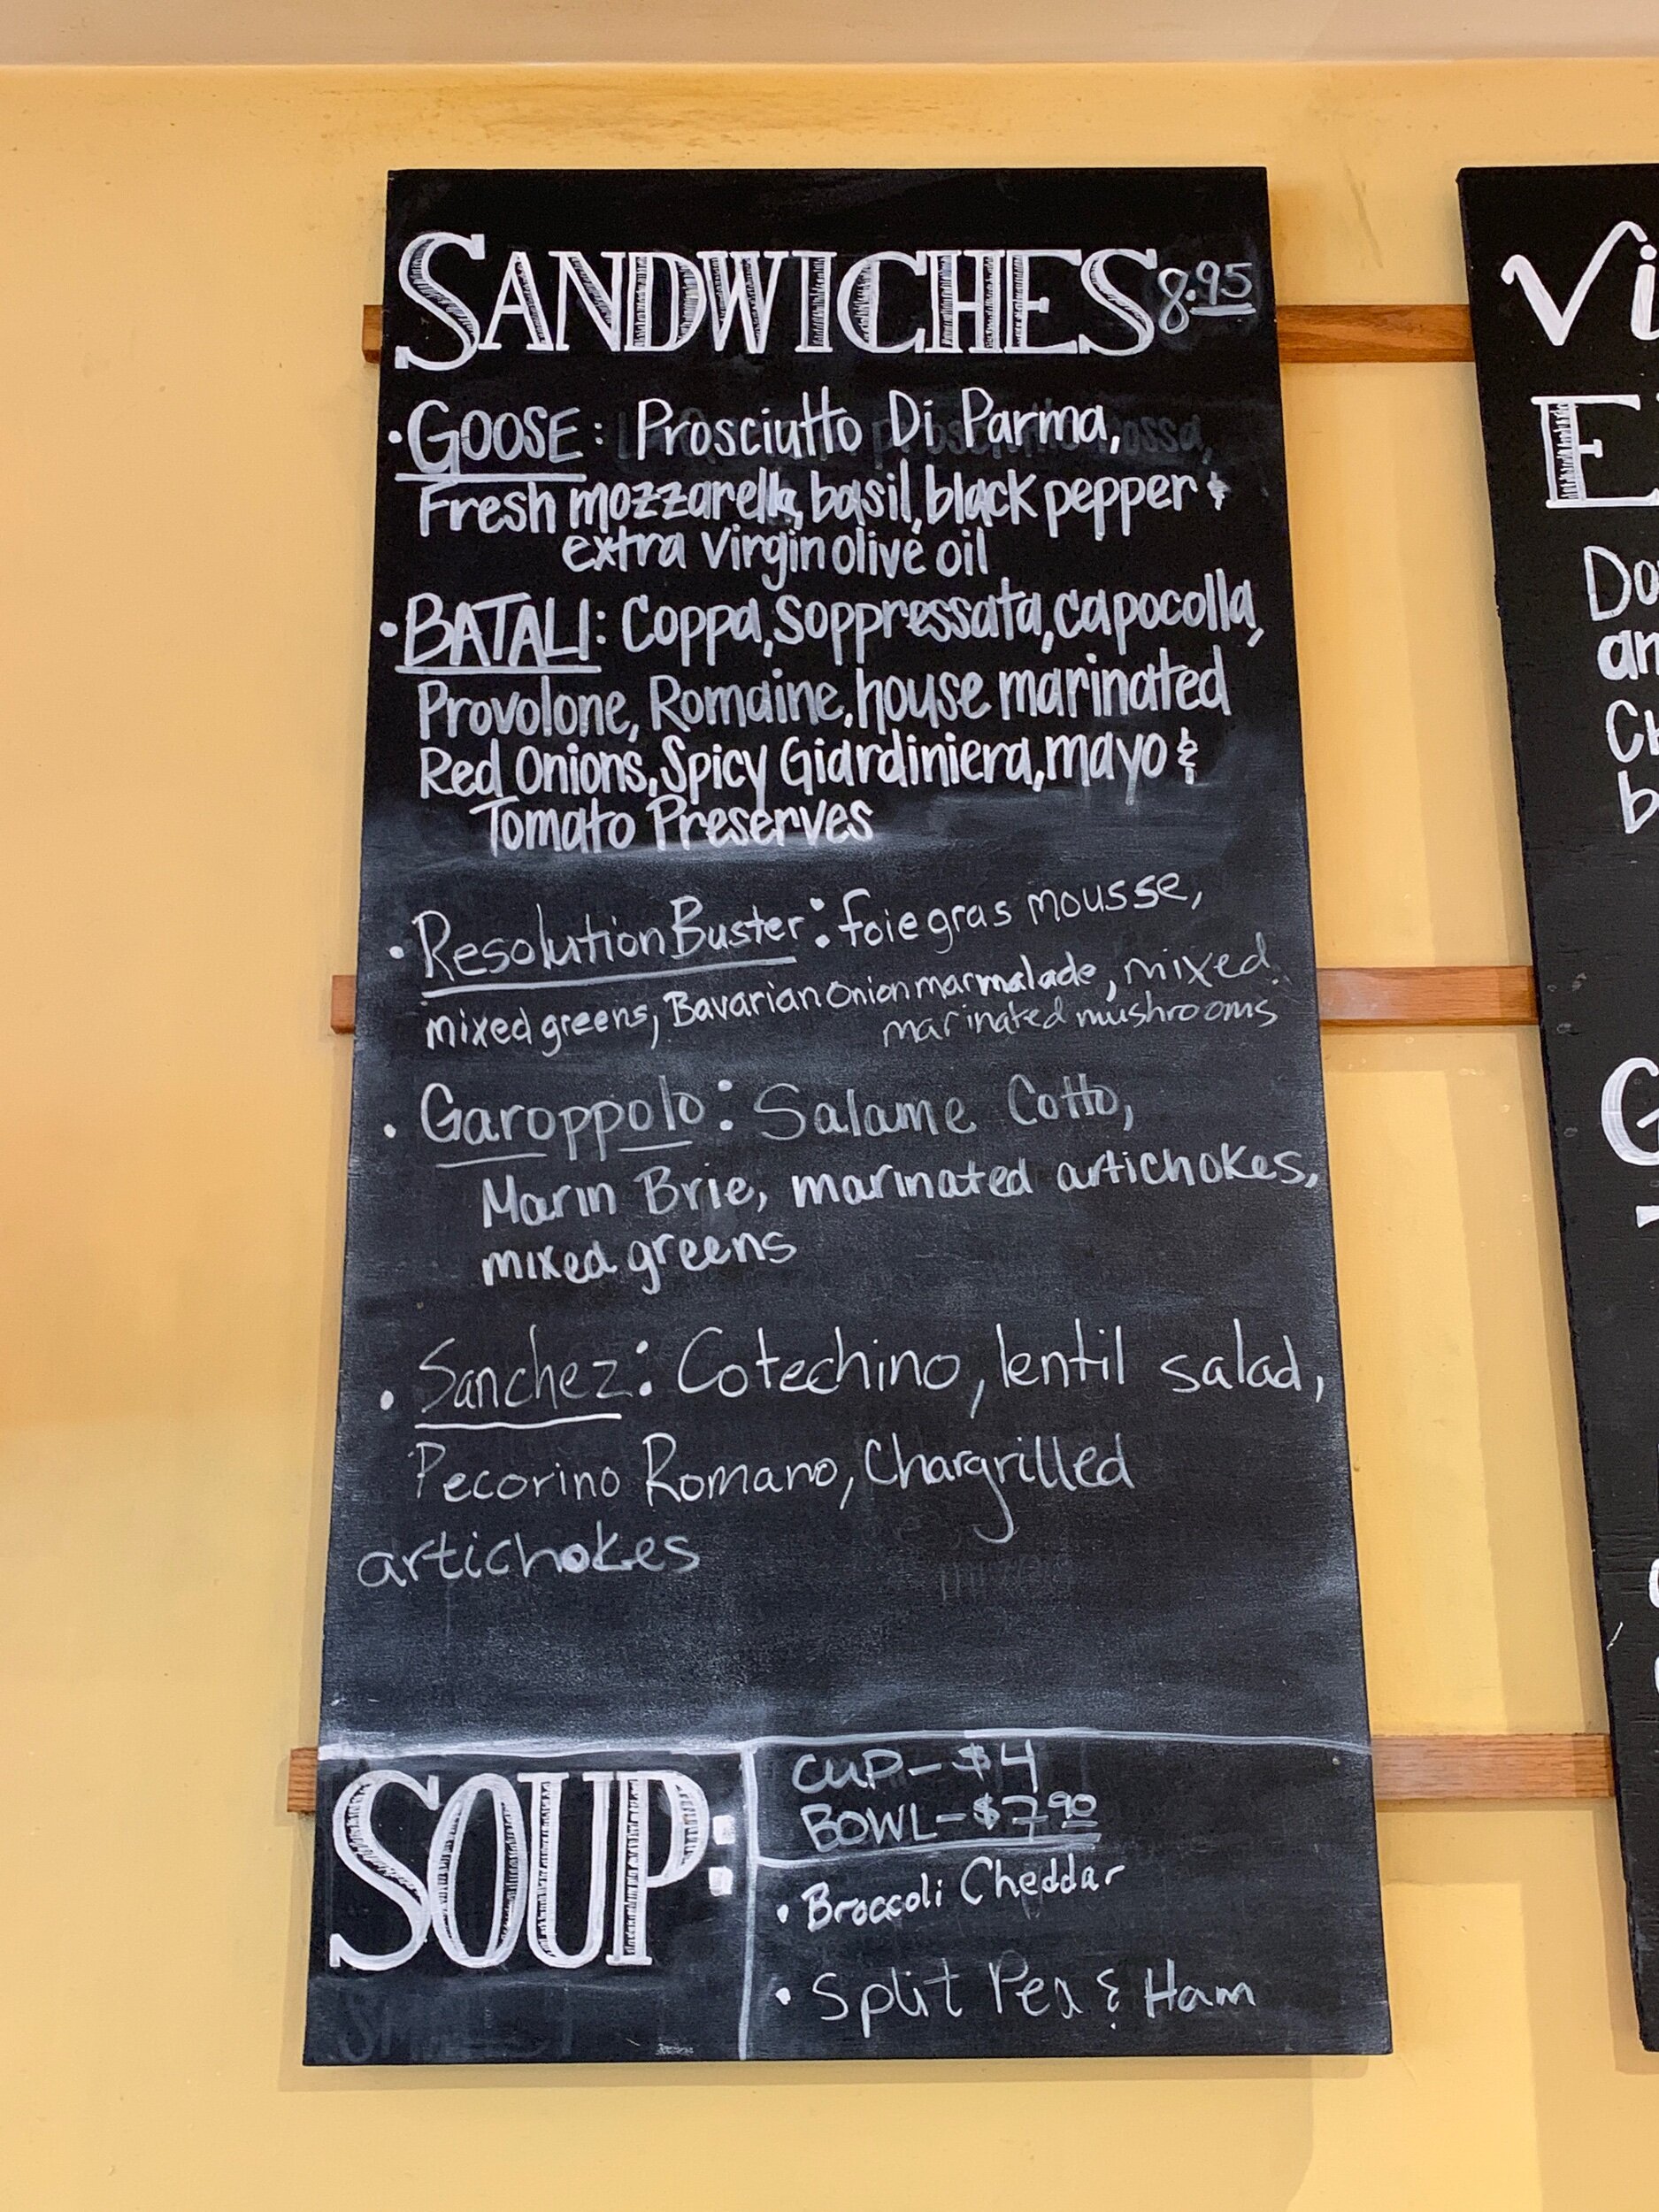 SANDWICHES 8.95
• GOOSE: Prosciutto Di Parma,
Fresh mozzarella, basil, black pepper &
extra virgin olive oil
• BATALI: Coppa, Soppressata, capocolla,
Provolone, Romaine, house marinated
Red Onions, Spicy Giardiniera, mayo &
Tomato Preserves
• Resolution Buster: foie gras mousse,
mixed greens, Bavarian Onion marmalade, mixed
marinated mushrooms
• Garoppolo: Salame Cotto,
Marin Brie, marinated artichokes,
mixed greens
• Sanchez: Cotechino, lentil salad,
Pecorino Romano, Chargrilled
artichokes
SOUP:
CUP - $4
BOWL - $7.90
• Broccoli Cheddar
• Split Pea & Ham
Vi
E
Do
an
Ch
b
G